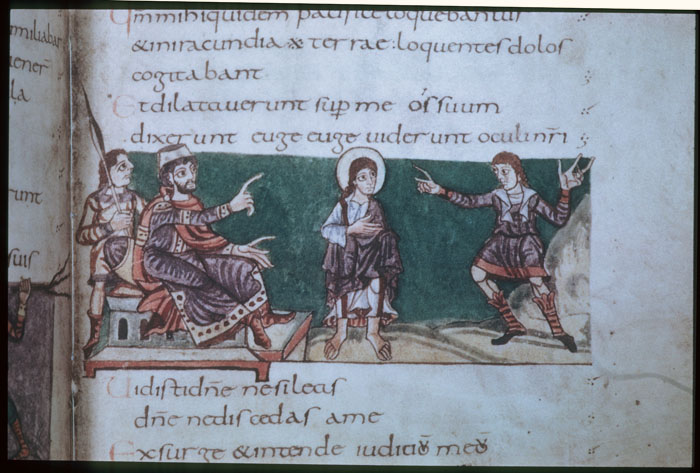 miliabar
Q̄m mihi quidem pacifice loquebantur
& in iracundia terrae: loquentes dolos
cogitabant
Et dilataverunt sup̄ me os suum
dixerunt euge euge viderunt oculi nr̄i
la
runt
suis
Vidisti dn̄e ne sileas
dn̄e ne discedas a me
Exsurge & intende iuditio meo